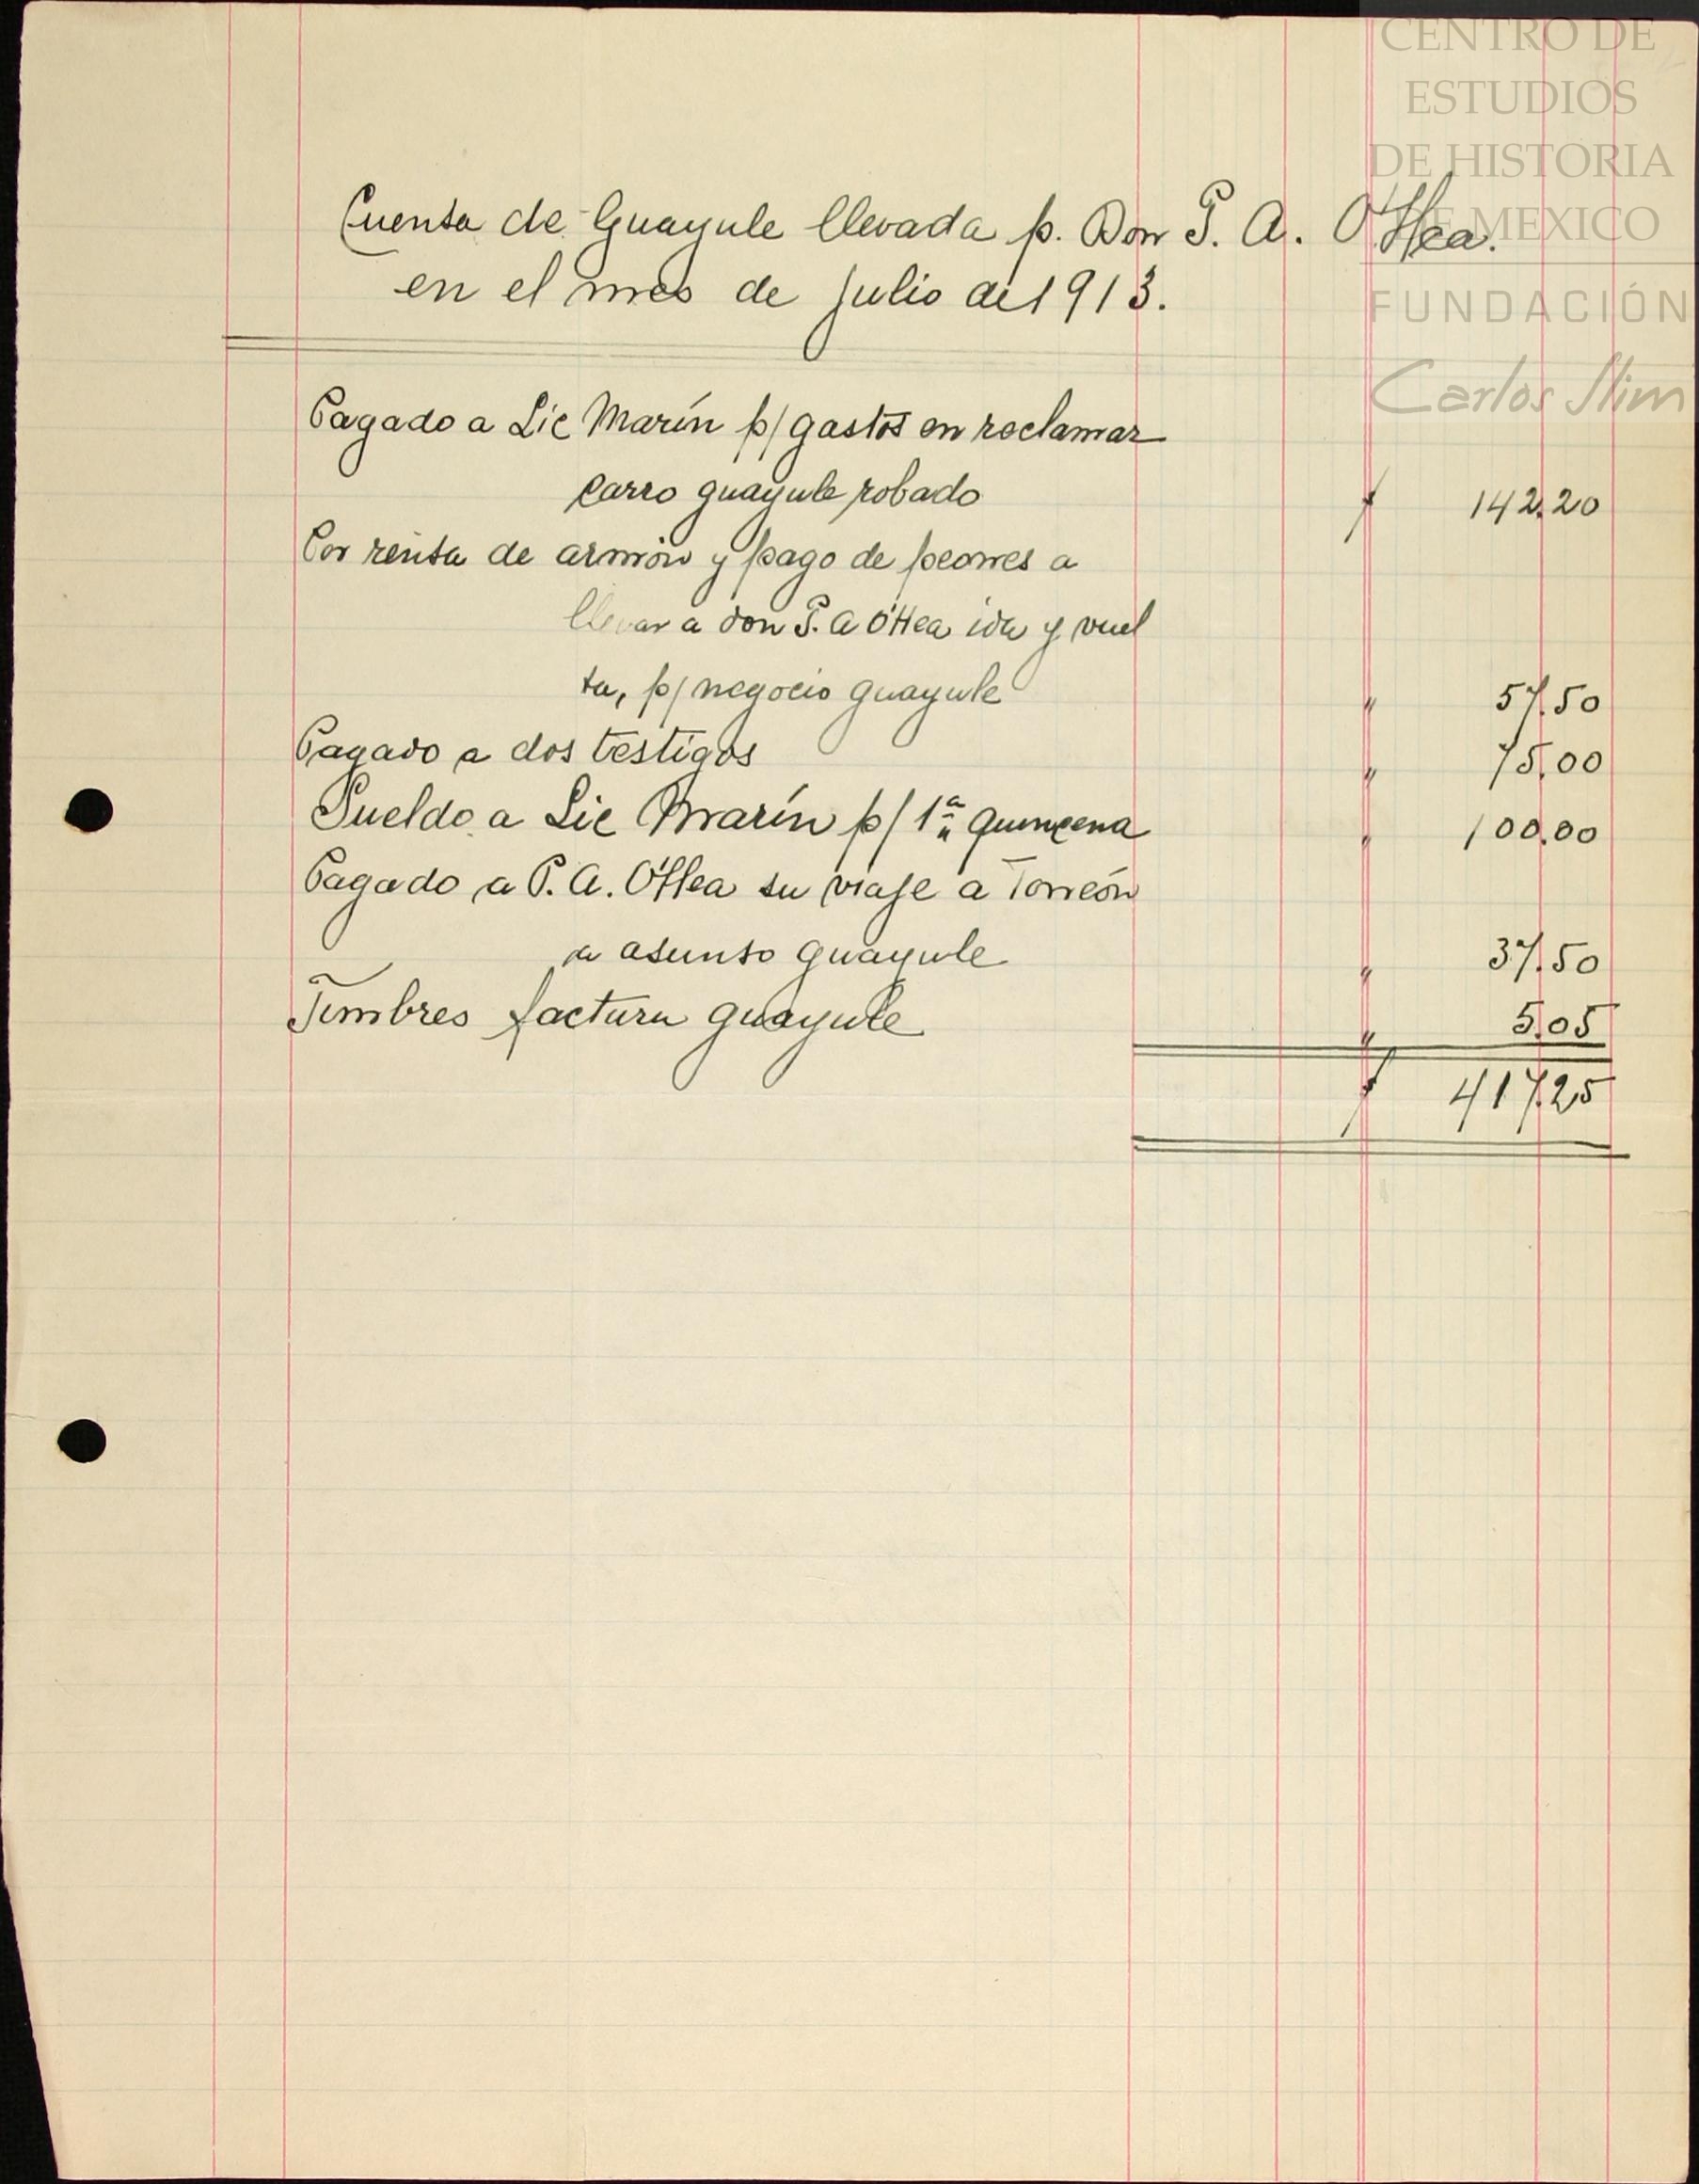 CENTRO DE
ESTUDIOS
DE HISTORIA
DE MEXICO
FUNDACIÓN
Carlos Slim
Cuenta de Guayule llevada p. Don P. A. O'Hea.
en el mes de julio de 1913.
Pagado a Lic Marín p/ gastos en reclamar
carro guayule robado $ 142.20
Por renta de armón y pago de peones a
llevar a don P. A O'Hea ida y vuel
ta, p/ negocio guayule " 57.50
Pagado a dos testigos " 75.00
Sueldo a Lic Marín p/ 1ª quincena " 100.00
Pagado a P. A. O'Hea su viaje a Torreón
a asunto guayule " 37.50
Timbres factura guayule " 5.05
$ 417.25